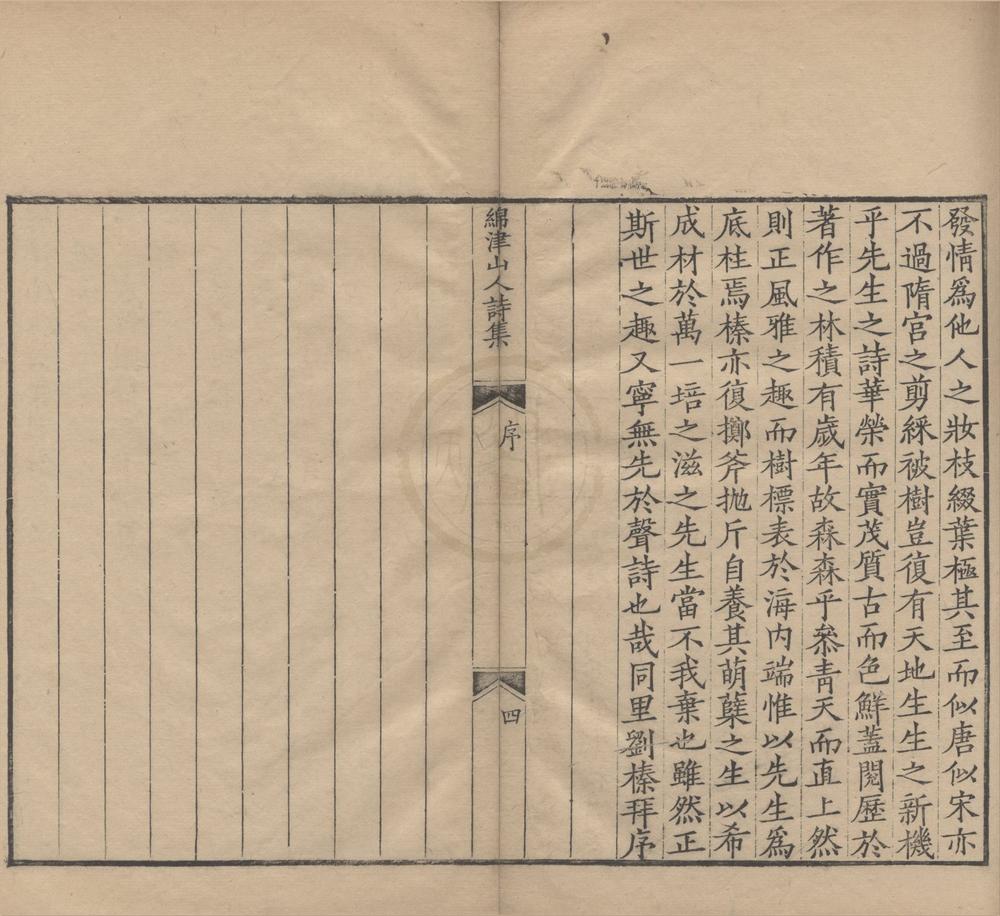 發情爲他人之妝枝綴葉極其至而似唐似宋亦
不過隋宮之剪綵被樹豈復有天地生生之新機
乎先生之詩華榮而實茂質古而色鮮蓋閱歷於
著作之林積有歲年故森森乎叅青天而直上然
則正風雅之趣而樹標表於海內端惟以先生爲
底柱焉榛亦復擲斧拋斤自養其萌蘖之生以希
成材於萬一培之滋之先生當不我棄也雖然正
斯世之趣又寧無先於聲詩也哉同里劉榛拜序
綿津山人詩集
序
四